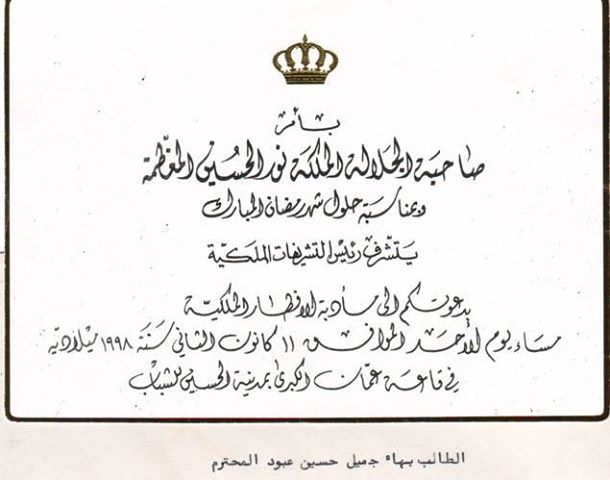 بأمر
صاحبة الجلالة الملكة نور الحسين المعظمة
وبمناسبة حلول شهر رمضان المبارك
يتشرف رئيس التشريفات الملكية
بدعوتكم الى مأدبة الافطار الملكية
مساء يوم الأحد الموافق ١١ كانون الثاني سنة ١٩٩٨ ميلاديه
في قاعة عمّان الكبرى بمدينة الحسين للشباب
الطالب بهاء جميل حسين عبود المحترم